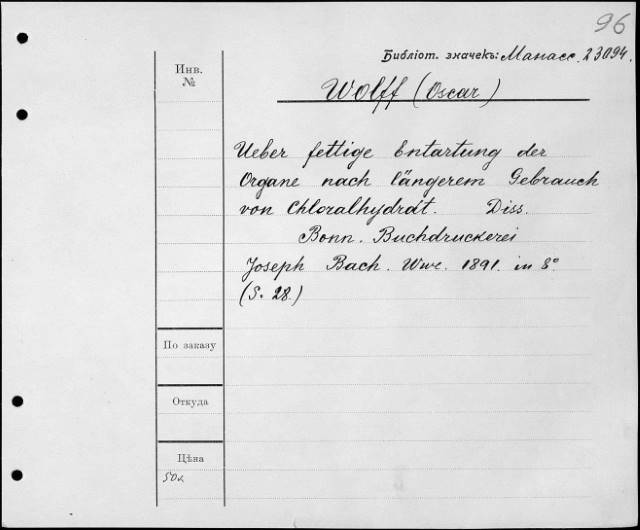 96
Библіот. значекъ: Манасс. 23094.
Инв.
№
Wolff (Oscar)
Ueber fettige Entartung der
Organe nach längerem Gebrauch
von Chloralhydrat. Diss.
Bonn. Buchdruckerei
Joseph Bach. Wwe. 1891. in 8°
(S. 28.)
По заказу
Откуда
Цѣна
50к.